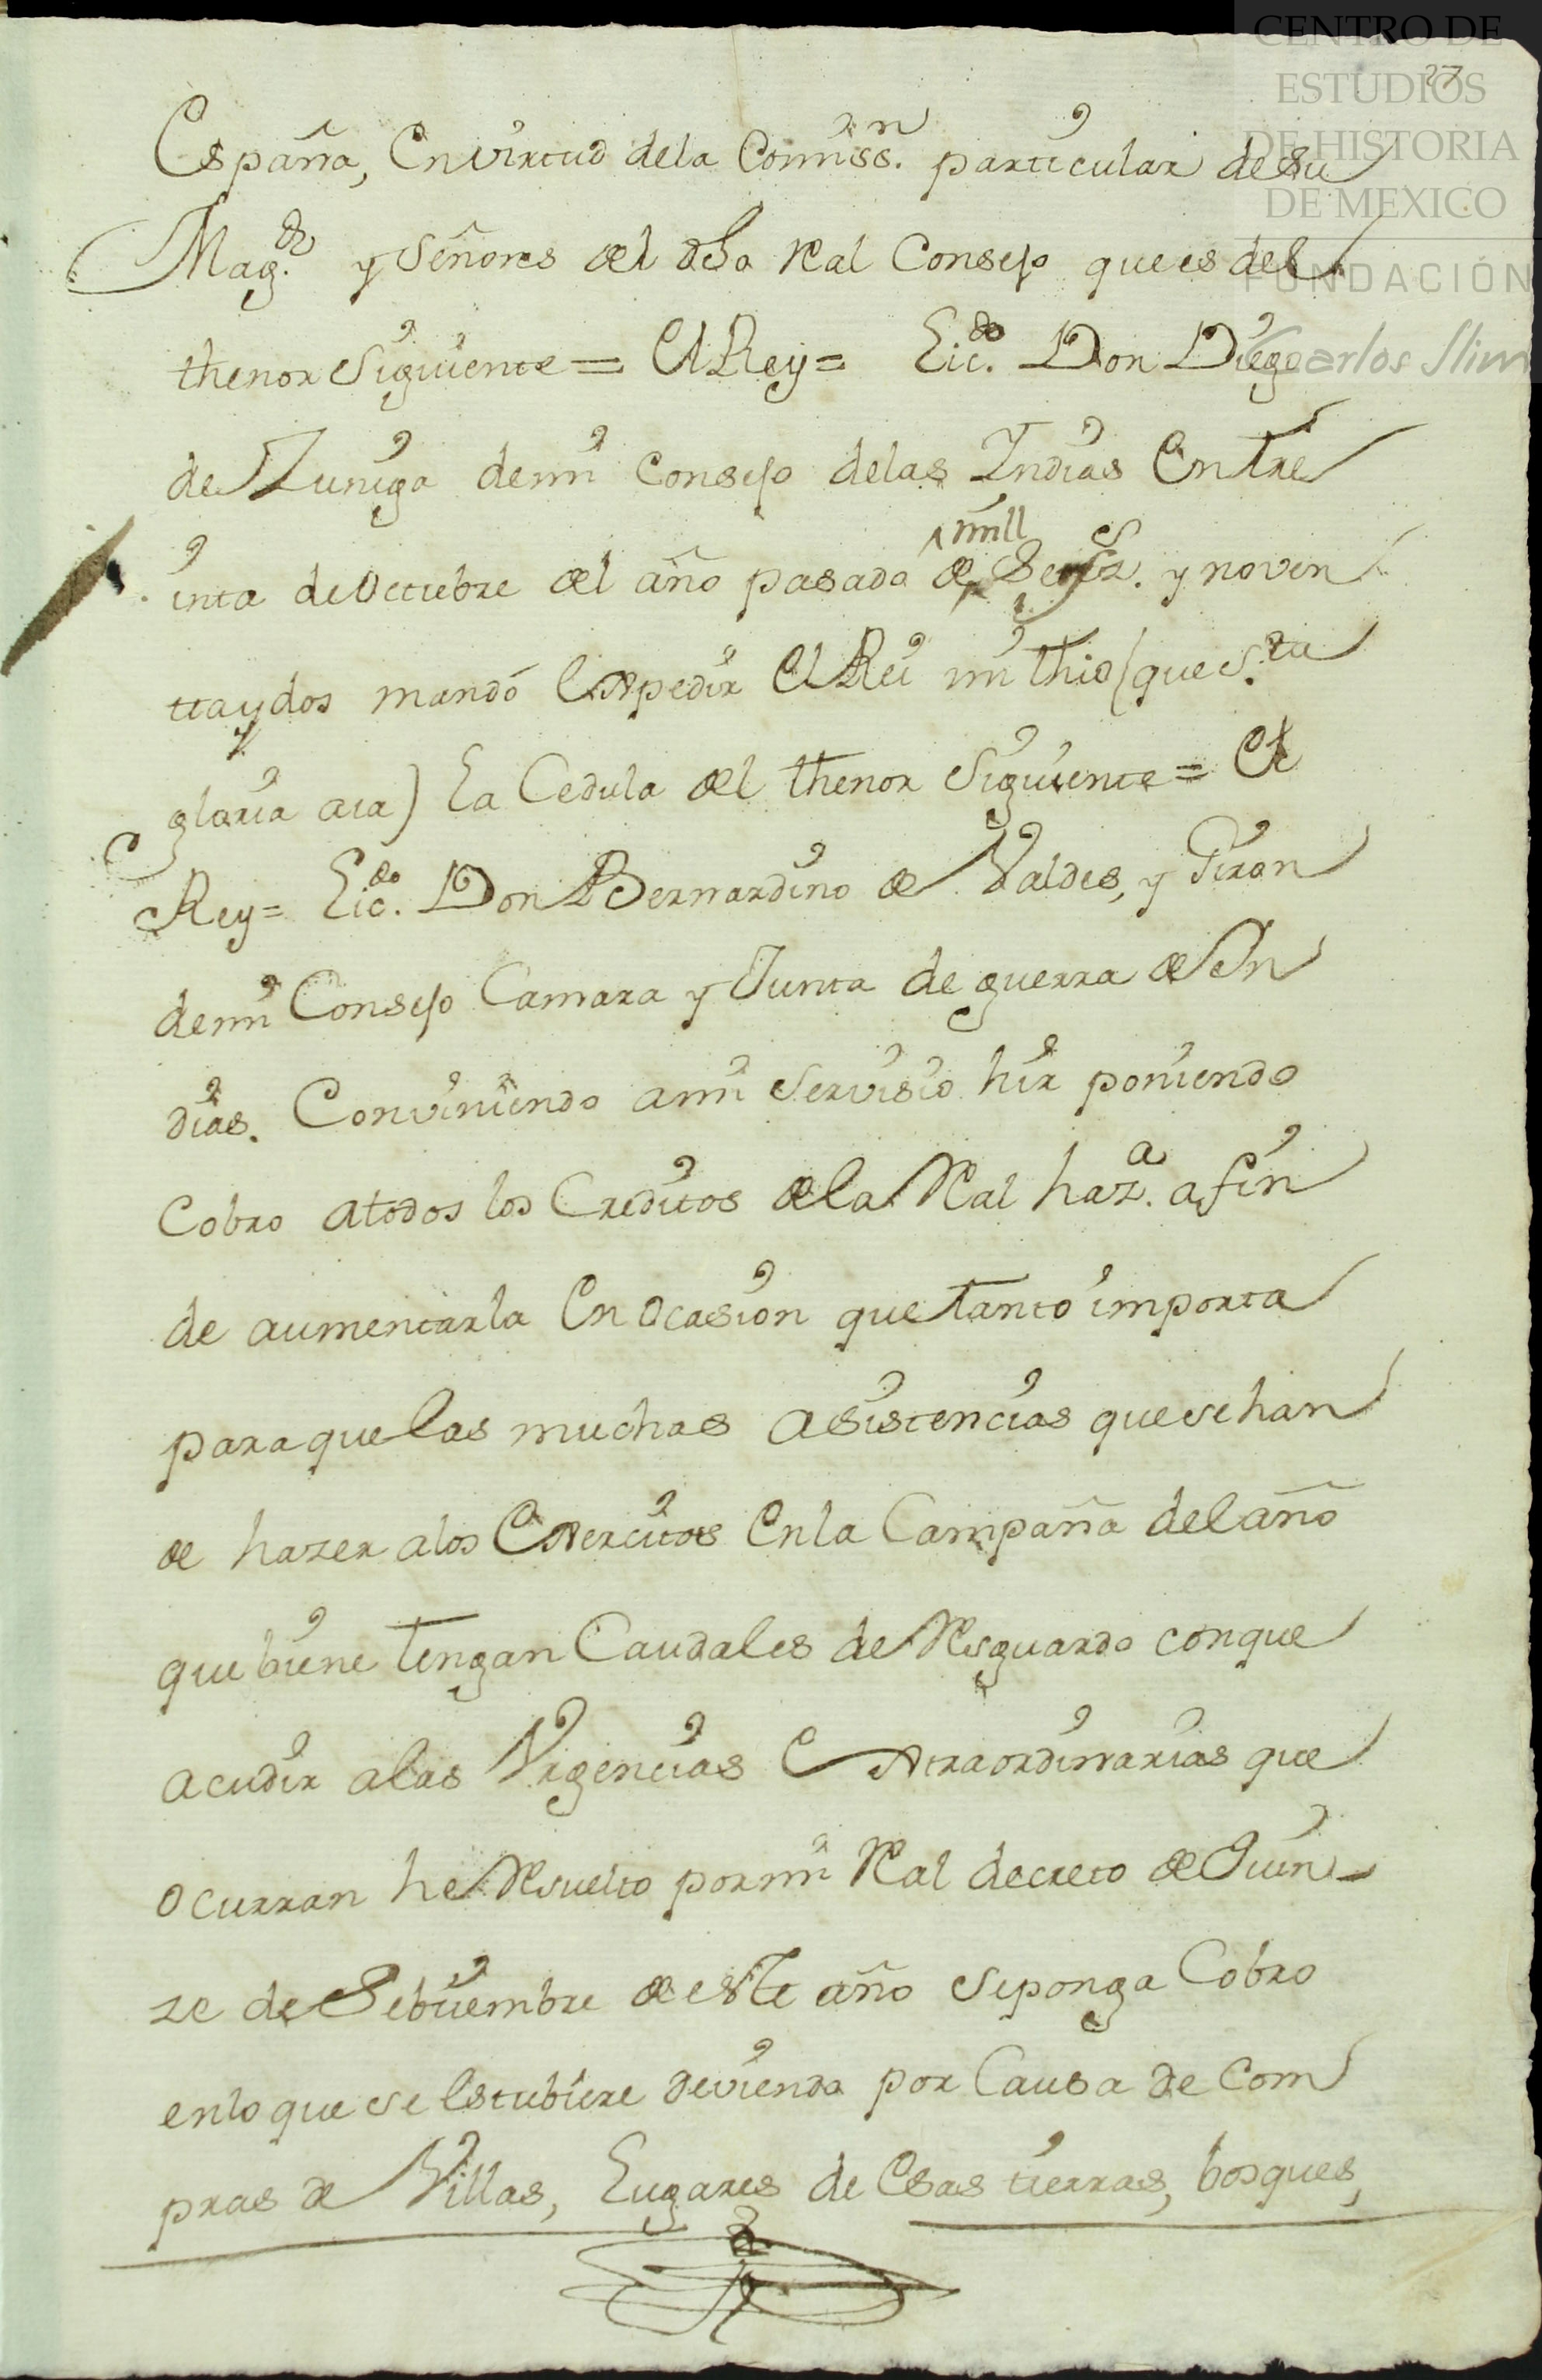 CENTRO DE
ESTUDIOS
DE HISTORIA
DE MEXICO
FUNDACIÓN
Carlos Slim
27
España, En virtud dela Comiss.n particular de su
Mag.d y Señores del dho Real Consejo que es del
thenor Siguiente = El Rey = Lic.do Don Diego
de Zuniga de mi Consejo delas Indias En tre
inta de Octubre del año pasado de mill Seys.s y noven
ta y dos mandó Expedir El Rei mi thio (que s.ta
gloria aia) La Cedula del thenor Siguiente = El
Rey = Lic.do Don Bernardino de Valdes, y Giron
de mi Consejo Camara y Junta de guerra de In
dias. Conviniendo a mi servisio hir poniendo
Cobro a todos los Creditos de la Real haz.a a fin
de aumentarla En ocasion que tanto importa
para que las muchas asistencias que se han
de hazer a los Exercitos En la Campaña del año
que biene tengan Caudales de Resguardo con que
acudir a las Urgencias Extraordinarias que
ocurran he Resuelto por mi Real decreto de Quin-
ze de Sebtiembre de este año se ponga Cobro
en lo que se Estubiere deviendo por Causa de Com
pras de Villas, Lugares de Esas tierras, bosques,